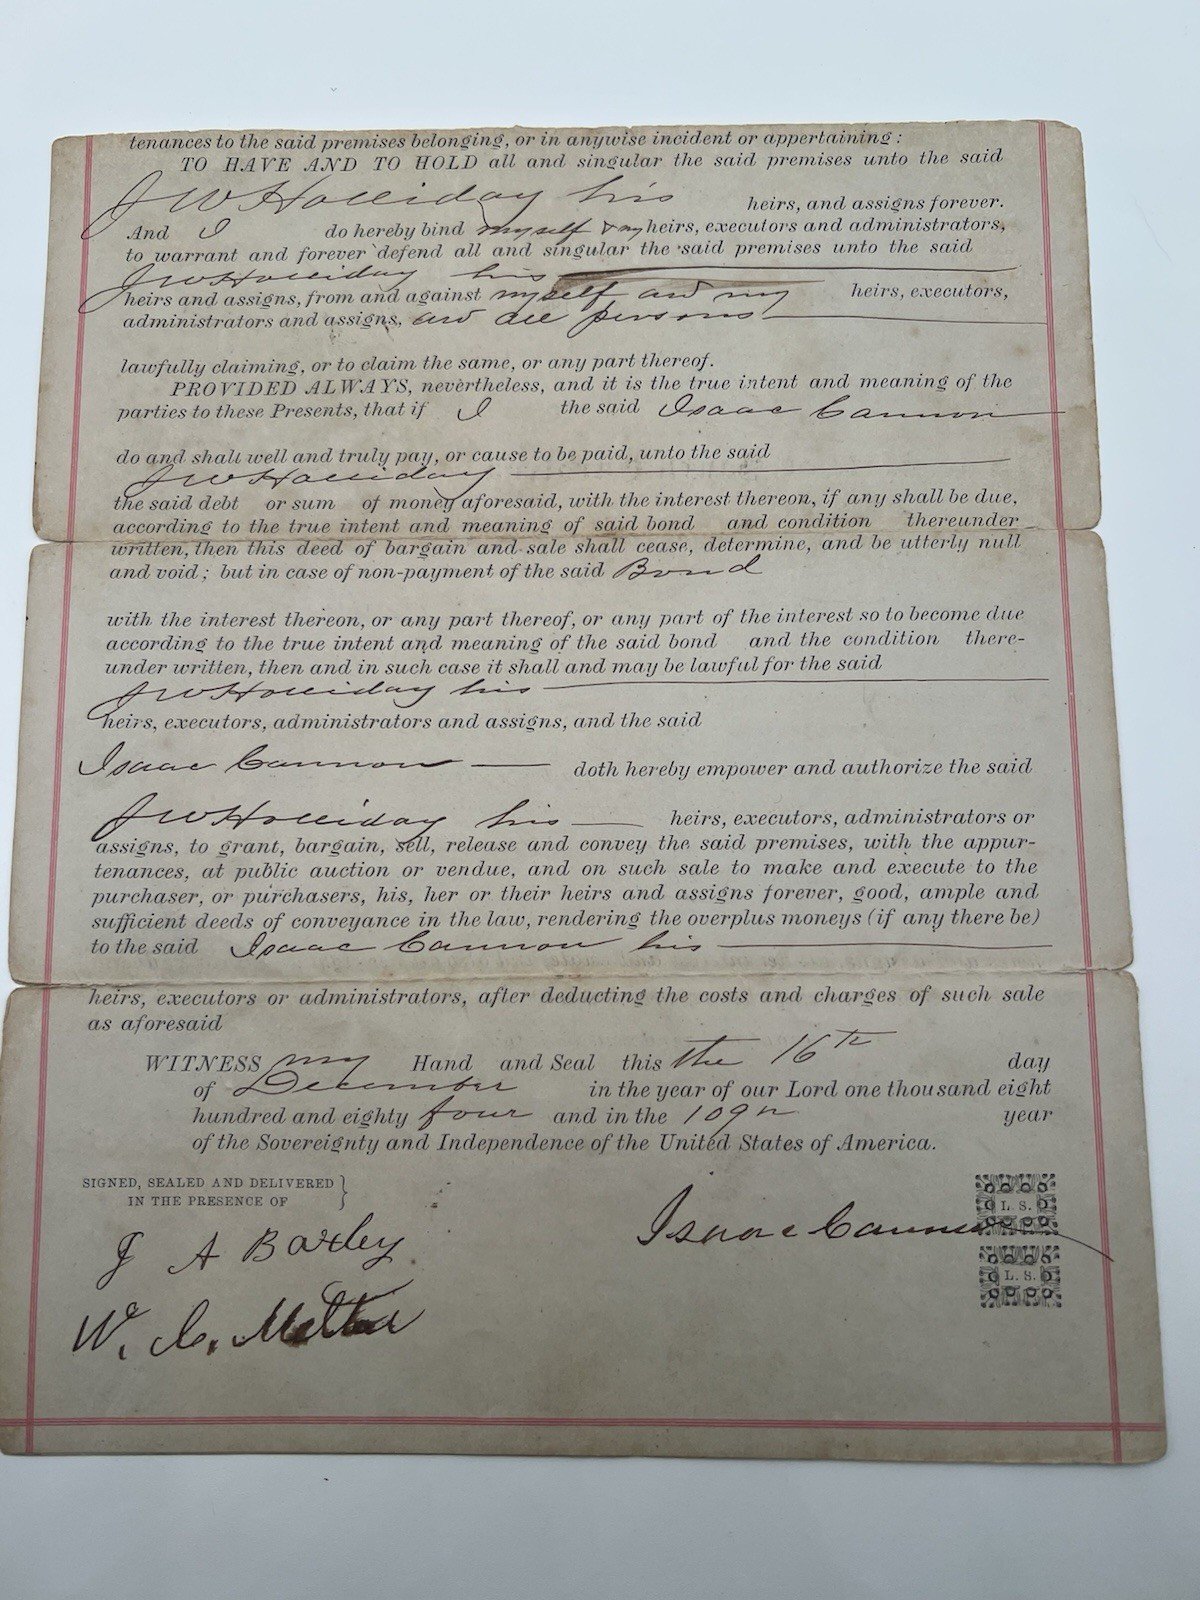 tenances to the said premises belonging, or in anywise incident or appertaining:
TO HAVE AND TO HOLD all and singular the said premises unto the said
J W Holliday his heirs, and assigns forever.
And I do hereby bind myself & my heirs, executors and administrators,
to warrant and forever defend all and singular the said premises unto the said
J W Holliday his
heirs and assigns, from and against myself and my heirs, executors,
administrators and assigns, and all persons
lawfully claiming, or to claim the same, or any part thereof.
PROVIDED ALWAYS, nevertheless, and it is the true intent and meaning of the
parties to these Presents, that if I the said Isaac Cannon
do and shall well and truly pay, or cause to be paid, unto the said
J W Holliday
the said debt or sum of money aforesaid, with the interest thereon, if any shall be due,
according to the true intent and meaning of said bond and condition thereunder
written, then this deed of bargain and sale shall cease, determine, and be utterly null
and void; but in case of non-payment of the said Bond
with the interest thereon, or any part thereof, or any part of the interest so to become due
according to the true intent and meaning of the said bond and the condition there-
under written, then and in such case it shall and may be lawful for the said
J W Holliday his
heirs, executors, administrators and assigns, and the said
Isaac Cannon doth hereby empower and authorize the said
J W Holliday his heirs, executors, administrators or
assigns, to grant, bargain, sell, release and convey the said premises, with the appur-
tenances, at public auction or vendue, and on such sale to make and execute to the
purchaser, or purchasers, his, her or their heirs and assigns forever, good, ample and
sufficient deeds of conveyance in the law, rendering the overplus moneys (if any there be)
to the said Isaac Cannon his
heirs, executors or administrators, after deducting the costs and charges of such sale
as aforesaid
WITNESS my Hand and Seal this the 16th day
of December in the year of our Lord one thousand eight
hundred and eighty four and in the 109th year
of the Sovereignty and Independence of the United States of America.
SIGNED, SEALED AND DELIVERED }
IN THE PRESENCE OF
J A Baxley
W. C.
Isaac Cannon
L. S.
L. S.